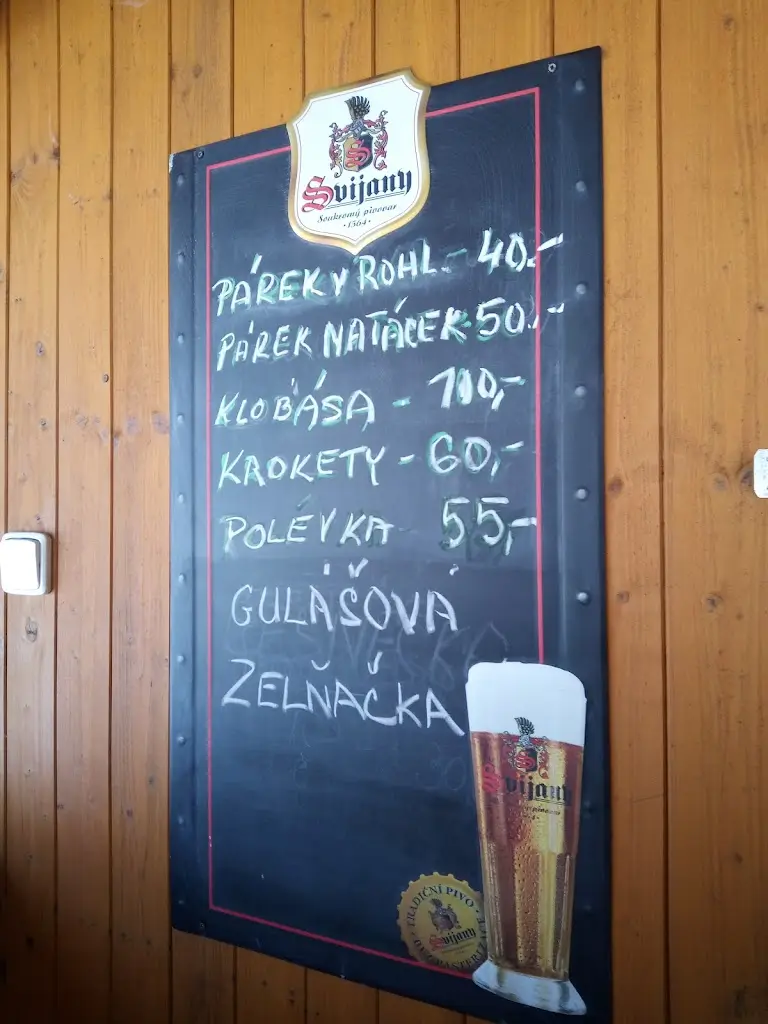 Svijany
Soukromý pivovar
·1564·
PÁREK V ROHL. - 40,-
PÁREK NA TÁCEK - 50,-
KLOBÁSA - 100,-
KROKETY - 60,-
POLÉVKA - 55,-
GULÁŠOVÁ
ZELŇAČKA
Svijany
TRADIČNÍ PIVO
Svijany